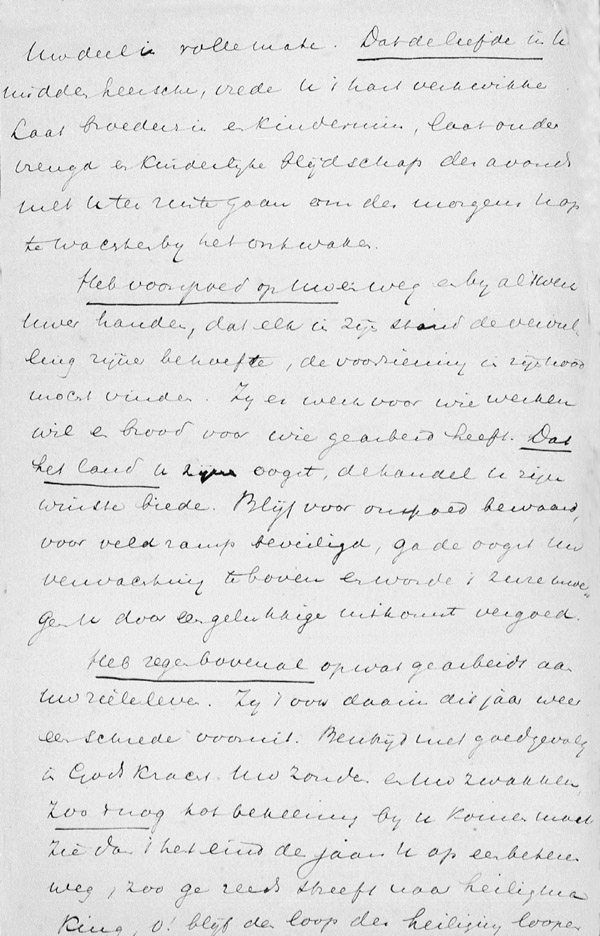 Uw deel in volle mate. Dat de liefde in Uw
midden heersche, vrede U 't hart verkwikke
Laat broedermin en kindermin, laat ouder
vreugd en kinderlijke blijdschap des avonds
met U ter ruste gaan om des morgens U op
te wachten by het ontwaken.
Heb voorspoed op Uwen weg en by al 't werk
Uwer handen, dat elk in zijn stand de vervul
ling zijner behoefte, de voorziening in zijn nood
mocht vinden. Zy er werk voor wie werken
wil en brood voor wie gearbeid heeft. Dat
het land U zijn oogst, de handel U zijn
winste biede. Blijf voor onspoed bewaard,
voor veldramp beveiligd, ga de oogst Uw
verwachting te boven en worde 't zure zwoe"
gen U door een gelukkige uitkomst vergoed.
Heb zegen bovenal op wat gearbeid aan
Uw zieleleven. Zy 't ook daarin dit jaar weer
een schrede vooruit. Bestrijd met goed gevolg
in Gods kracht Uw zonden en Uw zwakken,
Zoo 't nog tot bekeering by U komen moet
zie dan 't eind des jaars U op een beteren
weg, zoo ge reeds streeft naar heiligma
king, o! blijf den loop der heiliging loopen